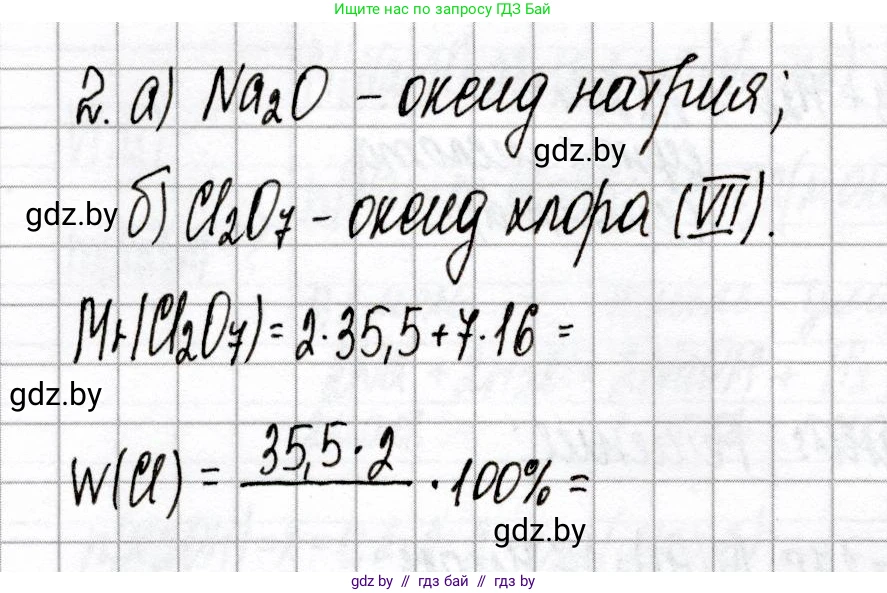 Ищите нас по запросу ГДЗ Бай
2. а) Na₂O – оксид натрия;
gdz.by
gdz.by
б) Cl₂O₇ – оксид хлора (VII).
Mr(Cl₂O₇) = 2·35,5+7·16 =
gdz.by
W(Cl) = 35,5·2 / · 100% =
gdz.by
gdz.by // гдз бай // gdz by